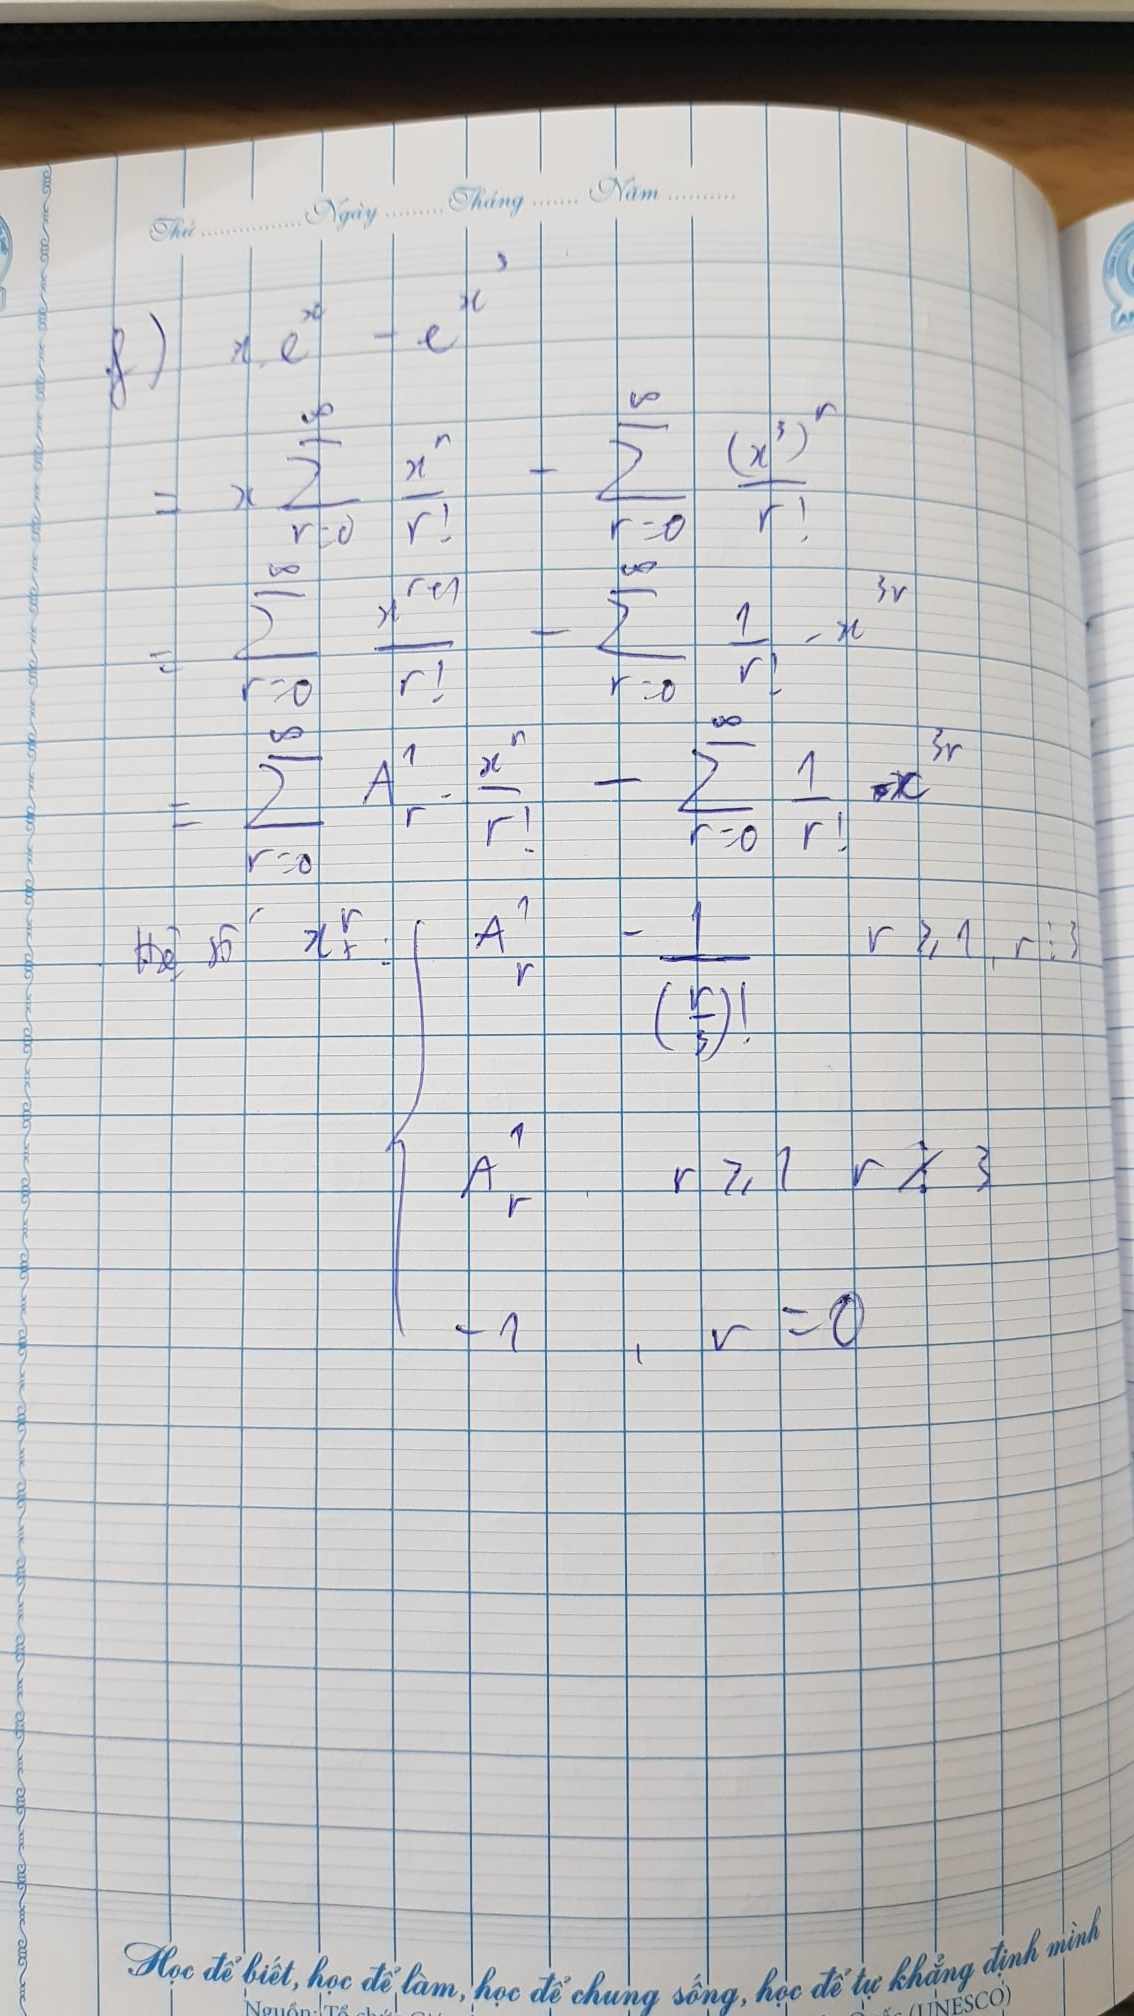 Thứ ............... Ngày ......... Tháng ....... Năm ..........
f) x e^x - e^{x^3}
= x \sum_{r=0}^{∞} \frac{x^r}{r!} - \sum_{r=0}^{∞} \frac{(x^3)^r}{r!}
= \sum_{r=0}^{∞} \frac{x^{r+1}}{r!} - \sum_{r=0}^{∞} \frac{1}{r!} . x^{3r}
= \sum_{r=0}^{∞} A_r^1 . \frac{x^r}{r!} - \sum_{r=0}^{∞} \frac{1}{r!} . x^{3r}
Hệ số x^r :
A_r^1 - \frac{1}{(\frac{r}{3})!} r ⩾ 1, r ⋮ 3
A_r^1 . r ⩾ 1 r \not⋮ 3
-1 , r = 0
Học để biết, học để làm, học để chung sống, học để tự khẳng định mình
(UNESCO)